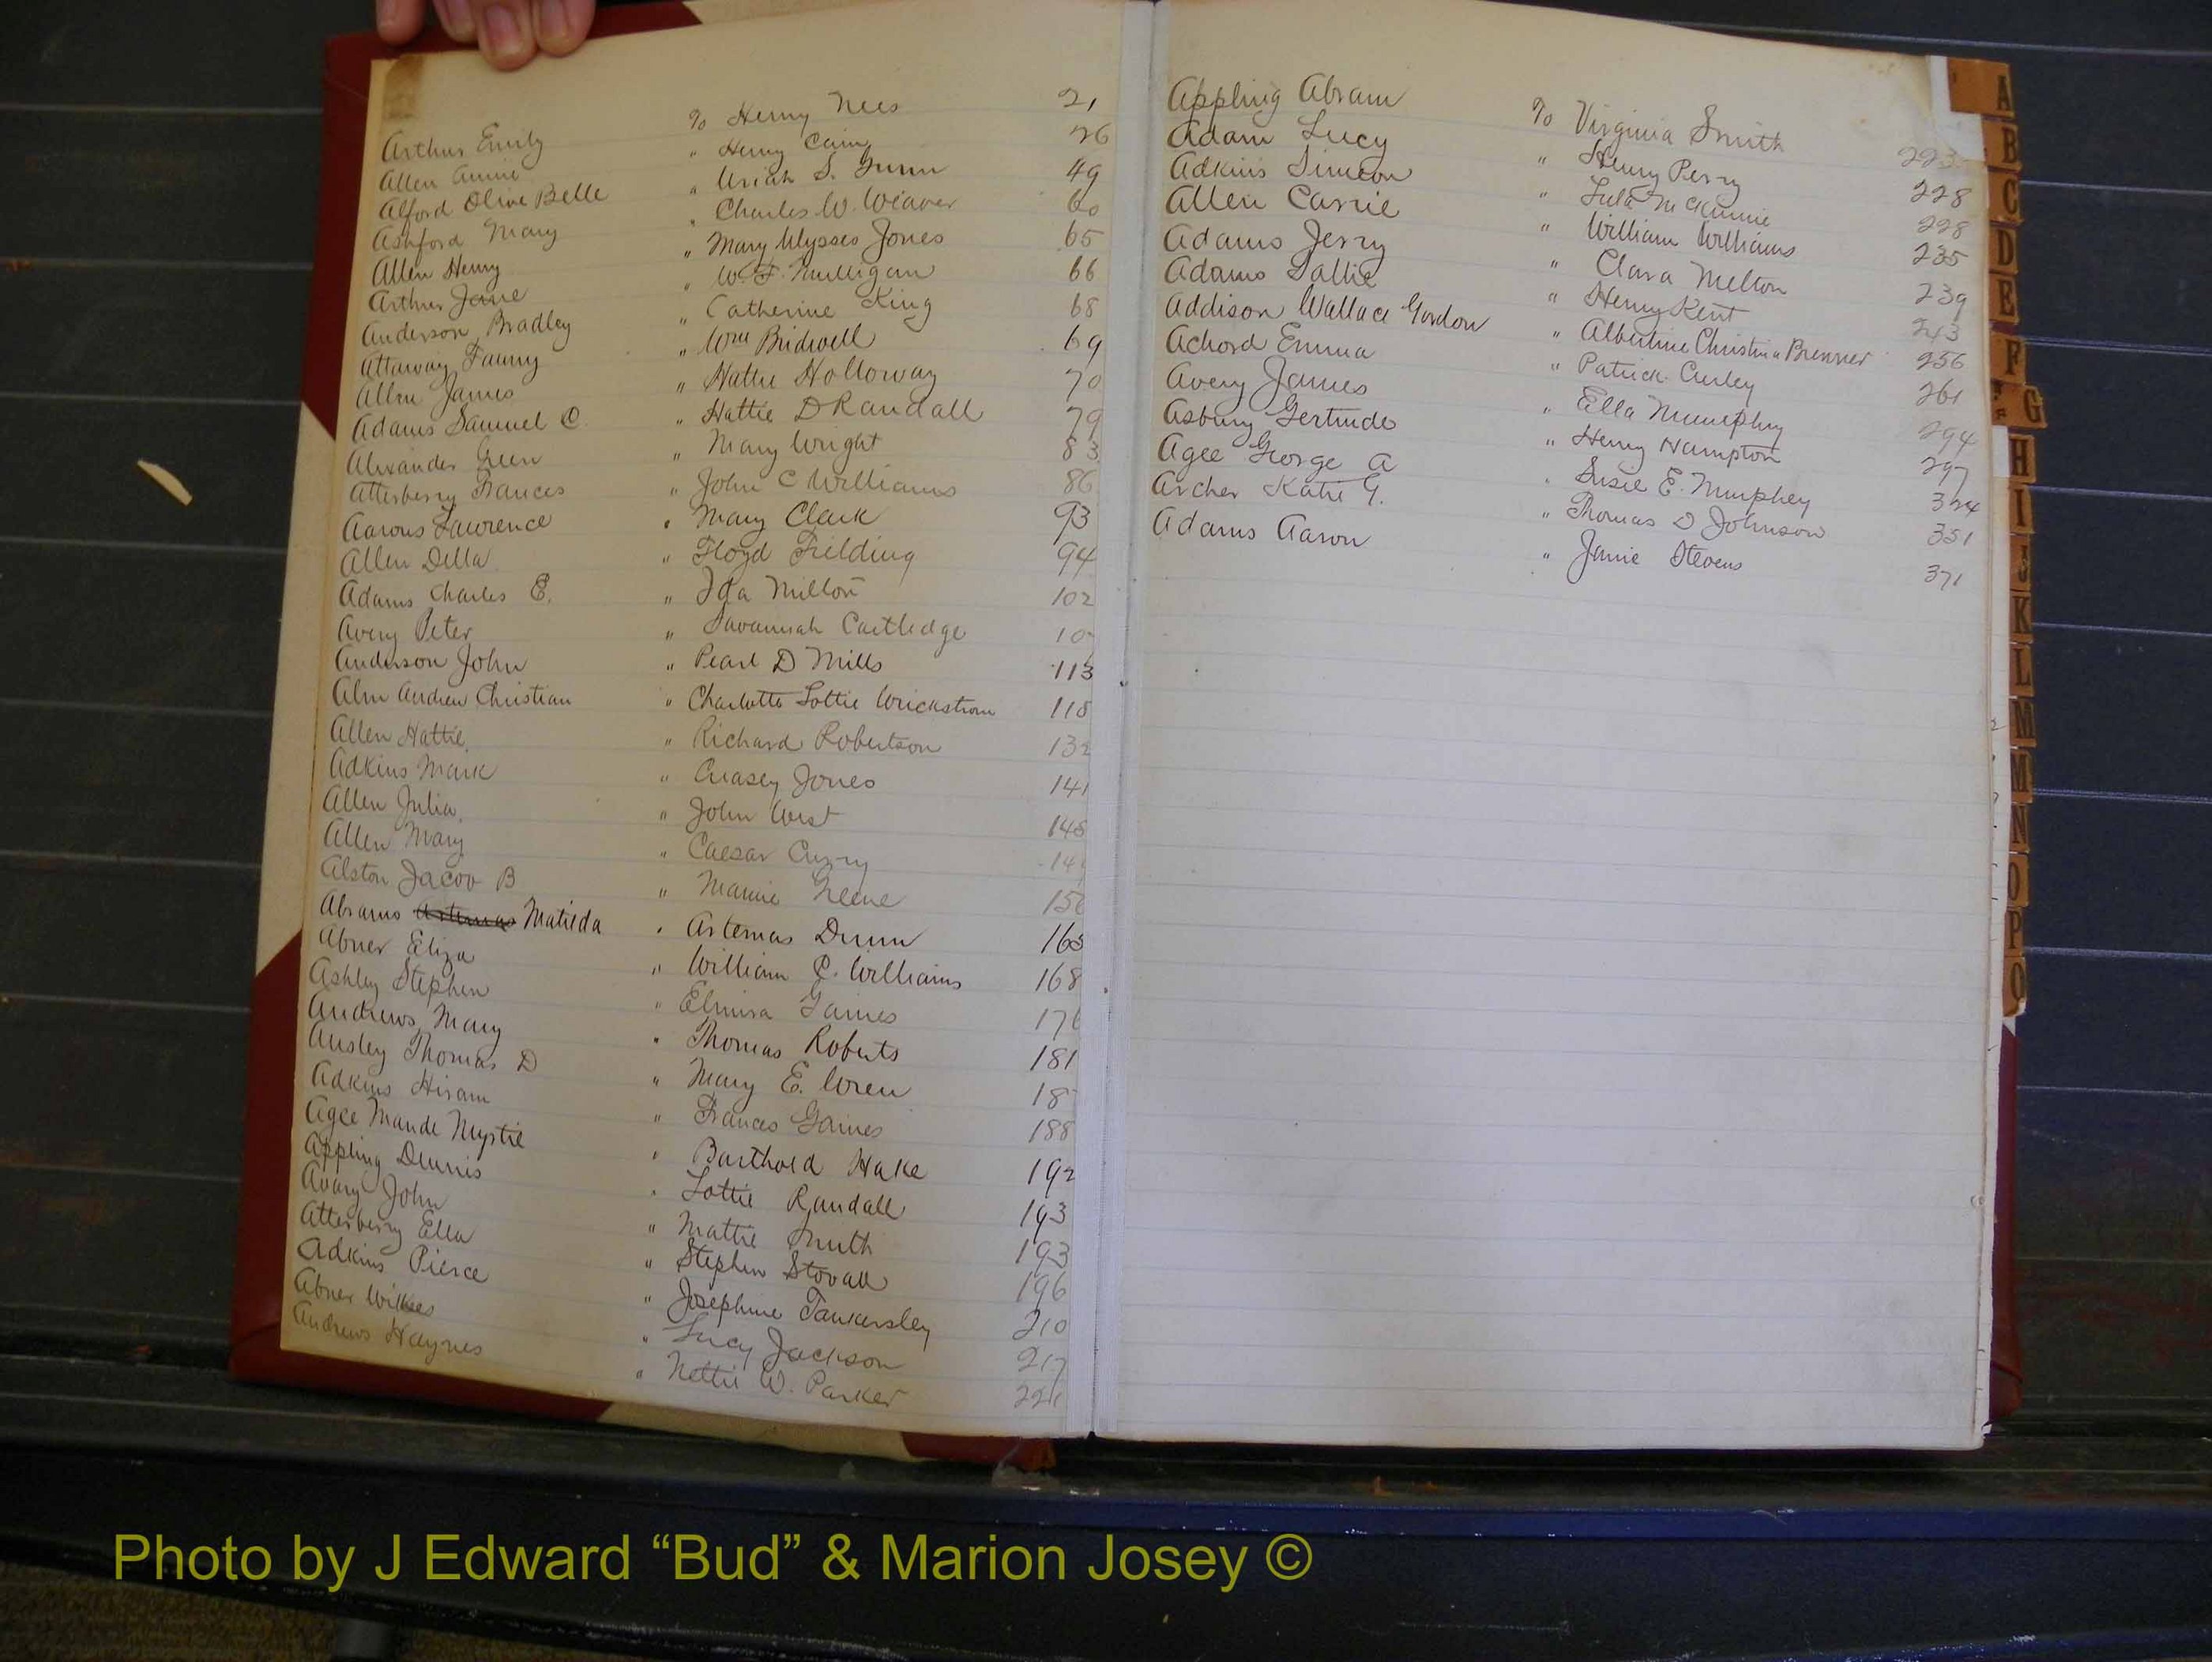 Arthur Emily To Henry Nees 21
Allen Annie " Henry Cain 26
Alford Olive Belle " Uriah S. Gunn 49
Ashford Mary " Charles W. Weaver 60
Allen Henry " Mary Ulysses Jones 65
Arthur Jane " W. F. Mulligan 66
Anderson Bradley " Catherine King 68
Attaway Fanny " Wm Bridwell 69
Allen James " Hattie Holloway 70
Adams Samuel C. " Hattie D Randall 79
Alexander Green " Mary Wright 83
Atterberry Frances " John C Williams 86
Aarons Lawrence " Mary Clark 93
Allen Della " Floyd Fielding 94
Adams Charles E. " Ida Milton 102
Avery Peter " Savannah Cartledge 10
Anderson John " Pearl D Mills 113
Alm Andrew Christian " Charlotte Lottie Wrickstrom 118
Allen Hattie " Richard Robertson 132
Adkins Mark " Creasey Jones 141
Allen Julia " John West 148
Allen Mary " Caesar Curry 14
Alston Jacob B " Mamie Greene 15
Abrams Artemas Matilda " Artemas Dunn 165
Abner Eliza " William C. Williams 168
Ashley Stephen " Elmira Gaines 17
Andrews Mary " Thomas Roberts 181
Ansley Thomas D " Mary E. Wren 18
Adkins Hiram " Frances Gaines 188
Agee Maude Myrtie " Barthold Hake 192
Appling Dennis " Lottie Randall 193
Avary John " Mattie Smith 193
Atterberry Ella " Stephen Stovall 196
Adkins Pierce " Josephine Tankersley 210
Abner Wilkes " Lucy Jackson 217
Andrews Haynes " Nettie W. Parker 22
Appling Abram To Virginia Smith 223
Adam Lucy " Henry Perry 228
Adkins Simeon " Lula McKinnie 228
Allen Carrie " William Williams 235
Adams Jerry " Clara Melton 239
Adams Sallie " Henry Kent 243
Addison Wallace Gordon " Albertine Christina Brenner 256
Achord Emma " Patrick Curley 261
Avery James " Ella Mumphry 294
Asbury Gertrude " Henry Hampton 297
Agee George A " Susie E. Murphey 324
Archer Katie G. " Thomas D Johnson 351
Adams Aaron " Janie Stevens 371
A
B
C
D
E
F
G
H
I
J
K
L
M
M
N
O
P
Q
Photo by J Edward “Bud” & Marion Josey ©